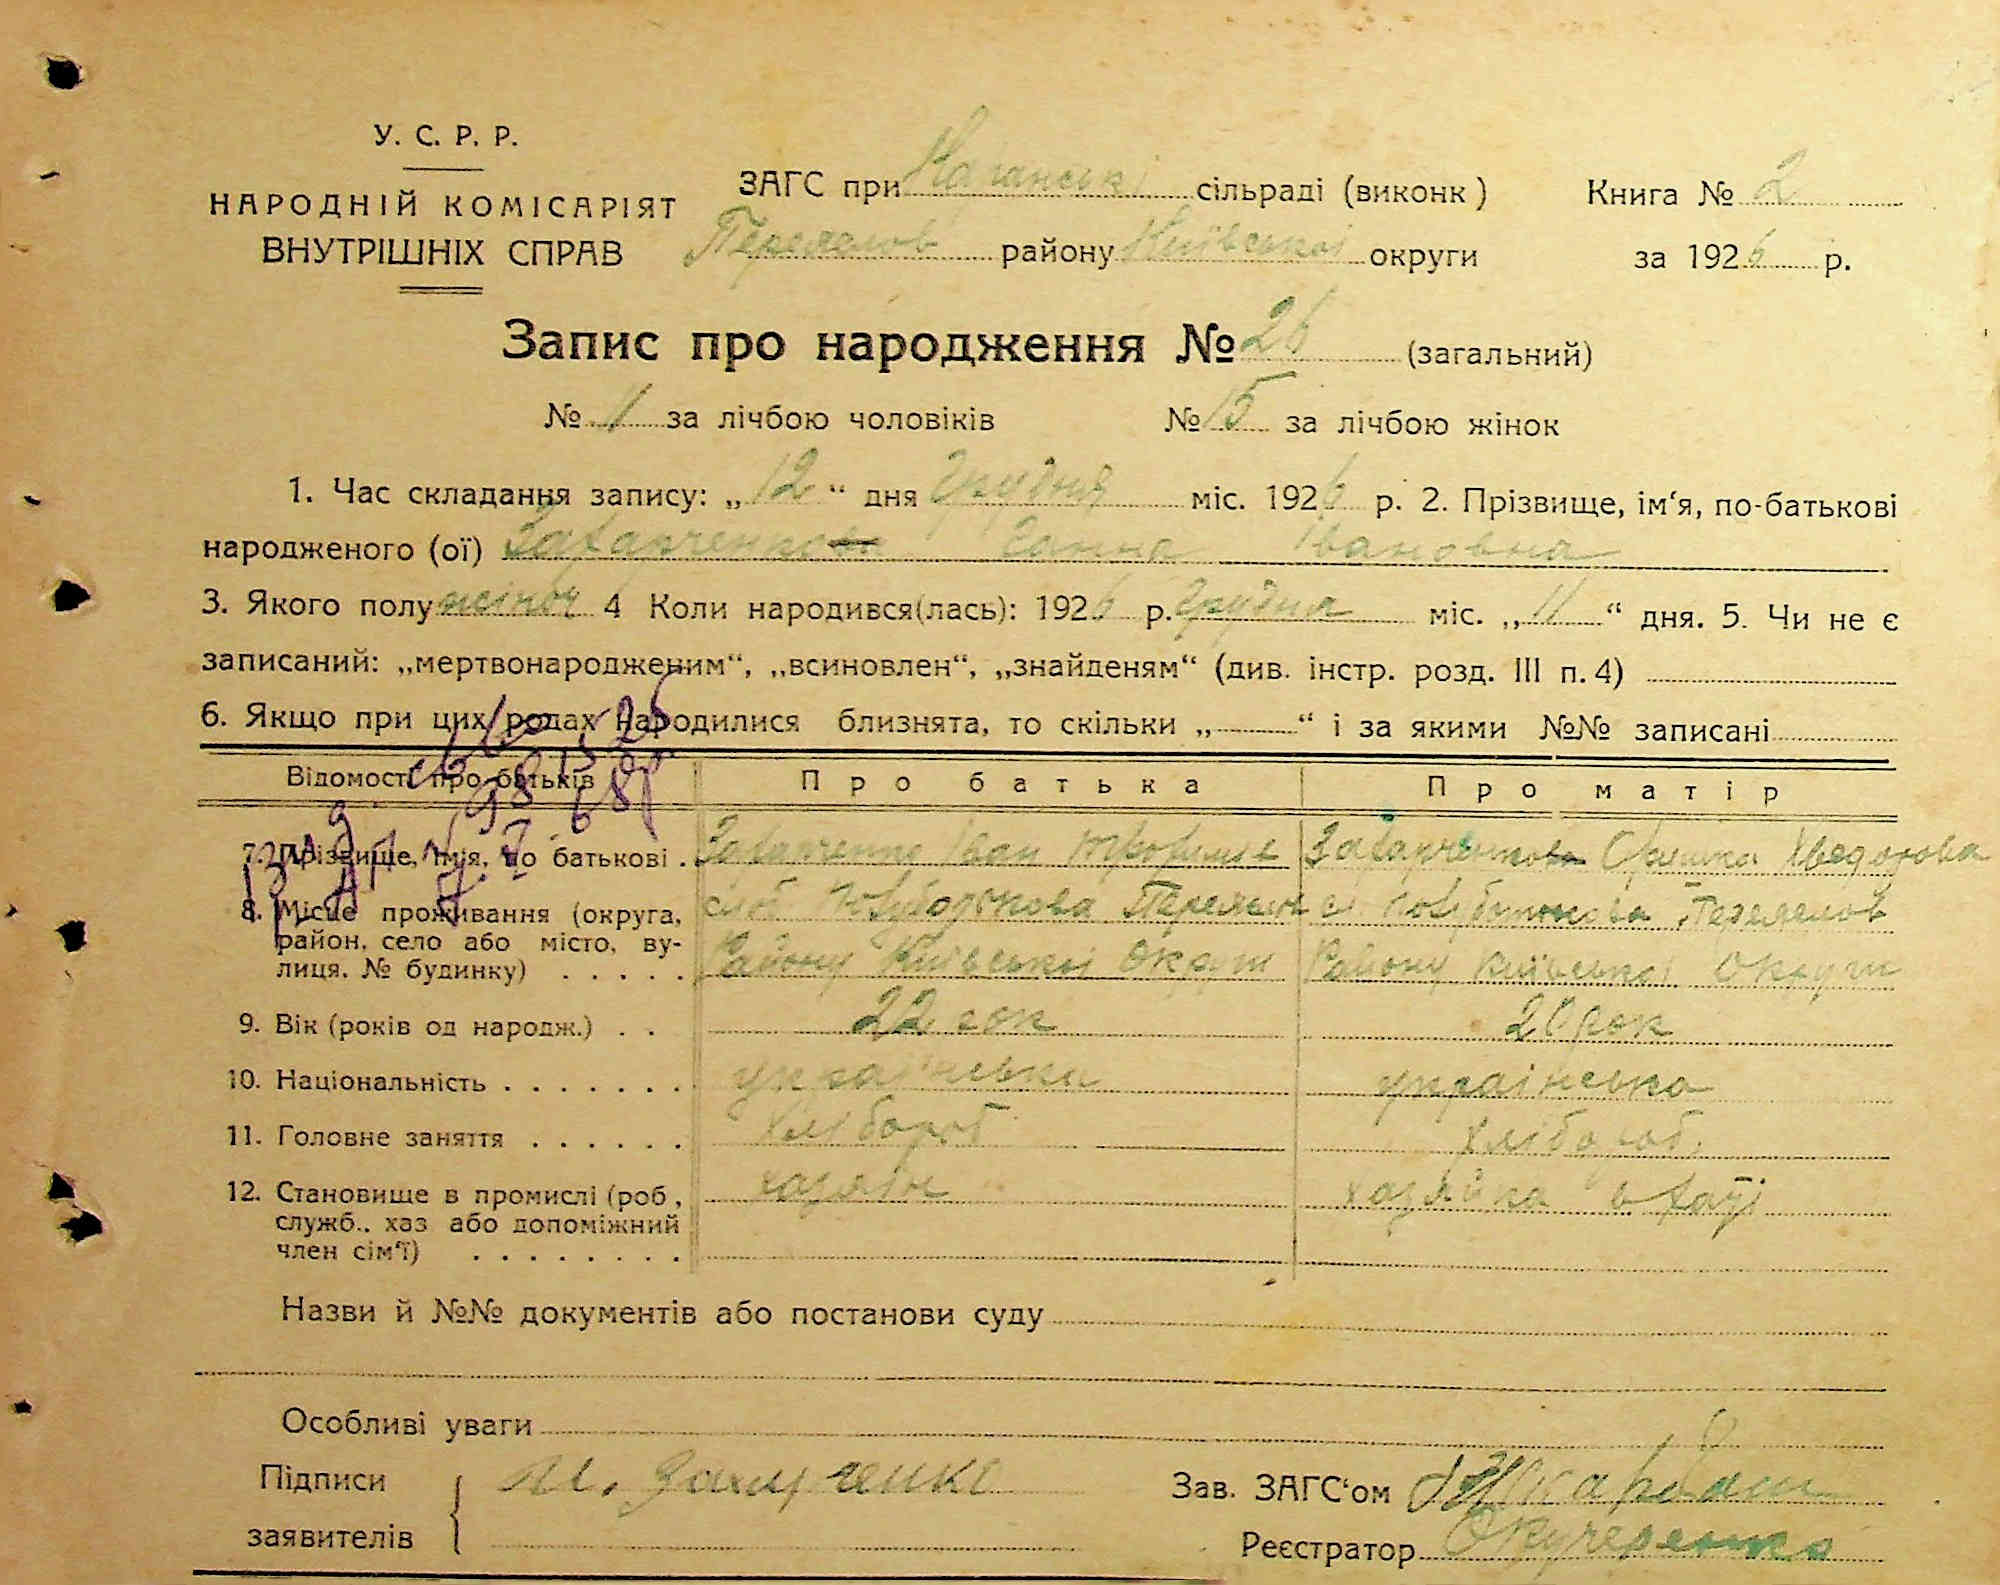 У. С. Р. Р.
НАРОДНІЙ КОМІСАРІЯТ
ВНУТРІШНІХ СПРАВ
ЗАГС при Каранські сільраді (виконк)
Переяслов району Київської округи
Книга № 2
за 1926 р.
Запис про народження № 26 (загальний)
№ 11 за лічбою чоловіків № 15 за лічбою жінок
1. Час складання запису: „12“ дня Грудня міс. 1926 р. 2. Прізвище, ім‘я, по-батькові
народженого (ої) Захарченко Ганна Івановна
3. Якого полу жіночу 4 Коли народився(лась): 1926 р. Грудня міс. „11“ дня. 5. Чи не є
записаний: „мертвонародженим“, „всиновлен“, „знайденям“ (див. інстр. розд. III п. 4)
6. Якщо при цих родах народилися близнята, то скільки „ “ і за якими №№ записані
Відомості про батьків Про батька Про матір
7. Прізвище, імя, по батькові . Захарченко Іван Трофимов Захарченкова Хведорова
8. Місце проживання (округа,
район, село або місто, ву-
лиця, № будинку) . . . . .
Району Київської Округи Району Київської Округи
9. Вік (років од народж.) . . 22 рок 20 рок
10. Національність . . . . . . . українська українська
11. Головне заняття . . . . . . хлібороб хлібороб.
12. Становище в промислі (роб., хазяін хазяйка в хаті
служб., хаз або допоміжний
член сім‘ї) . . . . . . . .
Назви й №№ документів або постанови суду
Особливі уваги
Підписи
заявителів
И. Захарченко
Зав. ЗАГС‘ом
Реєстратор Окучеренко